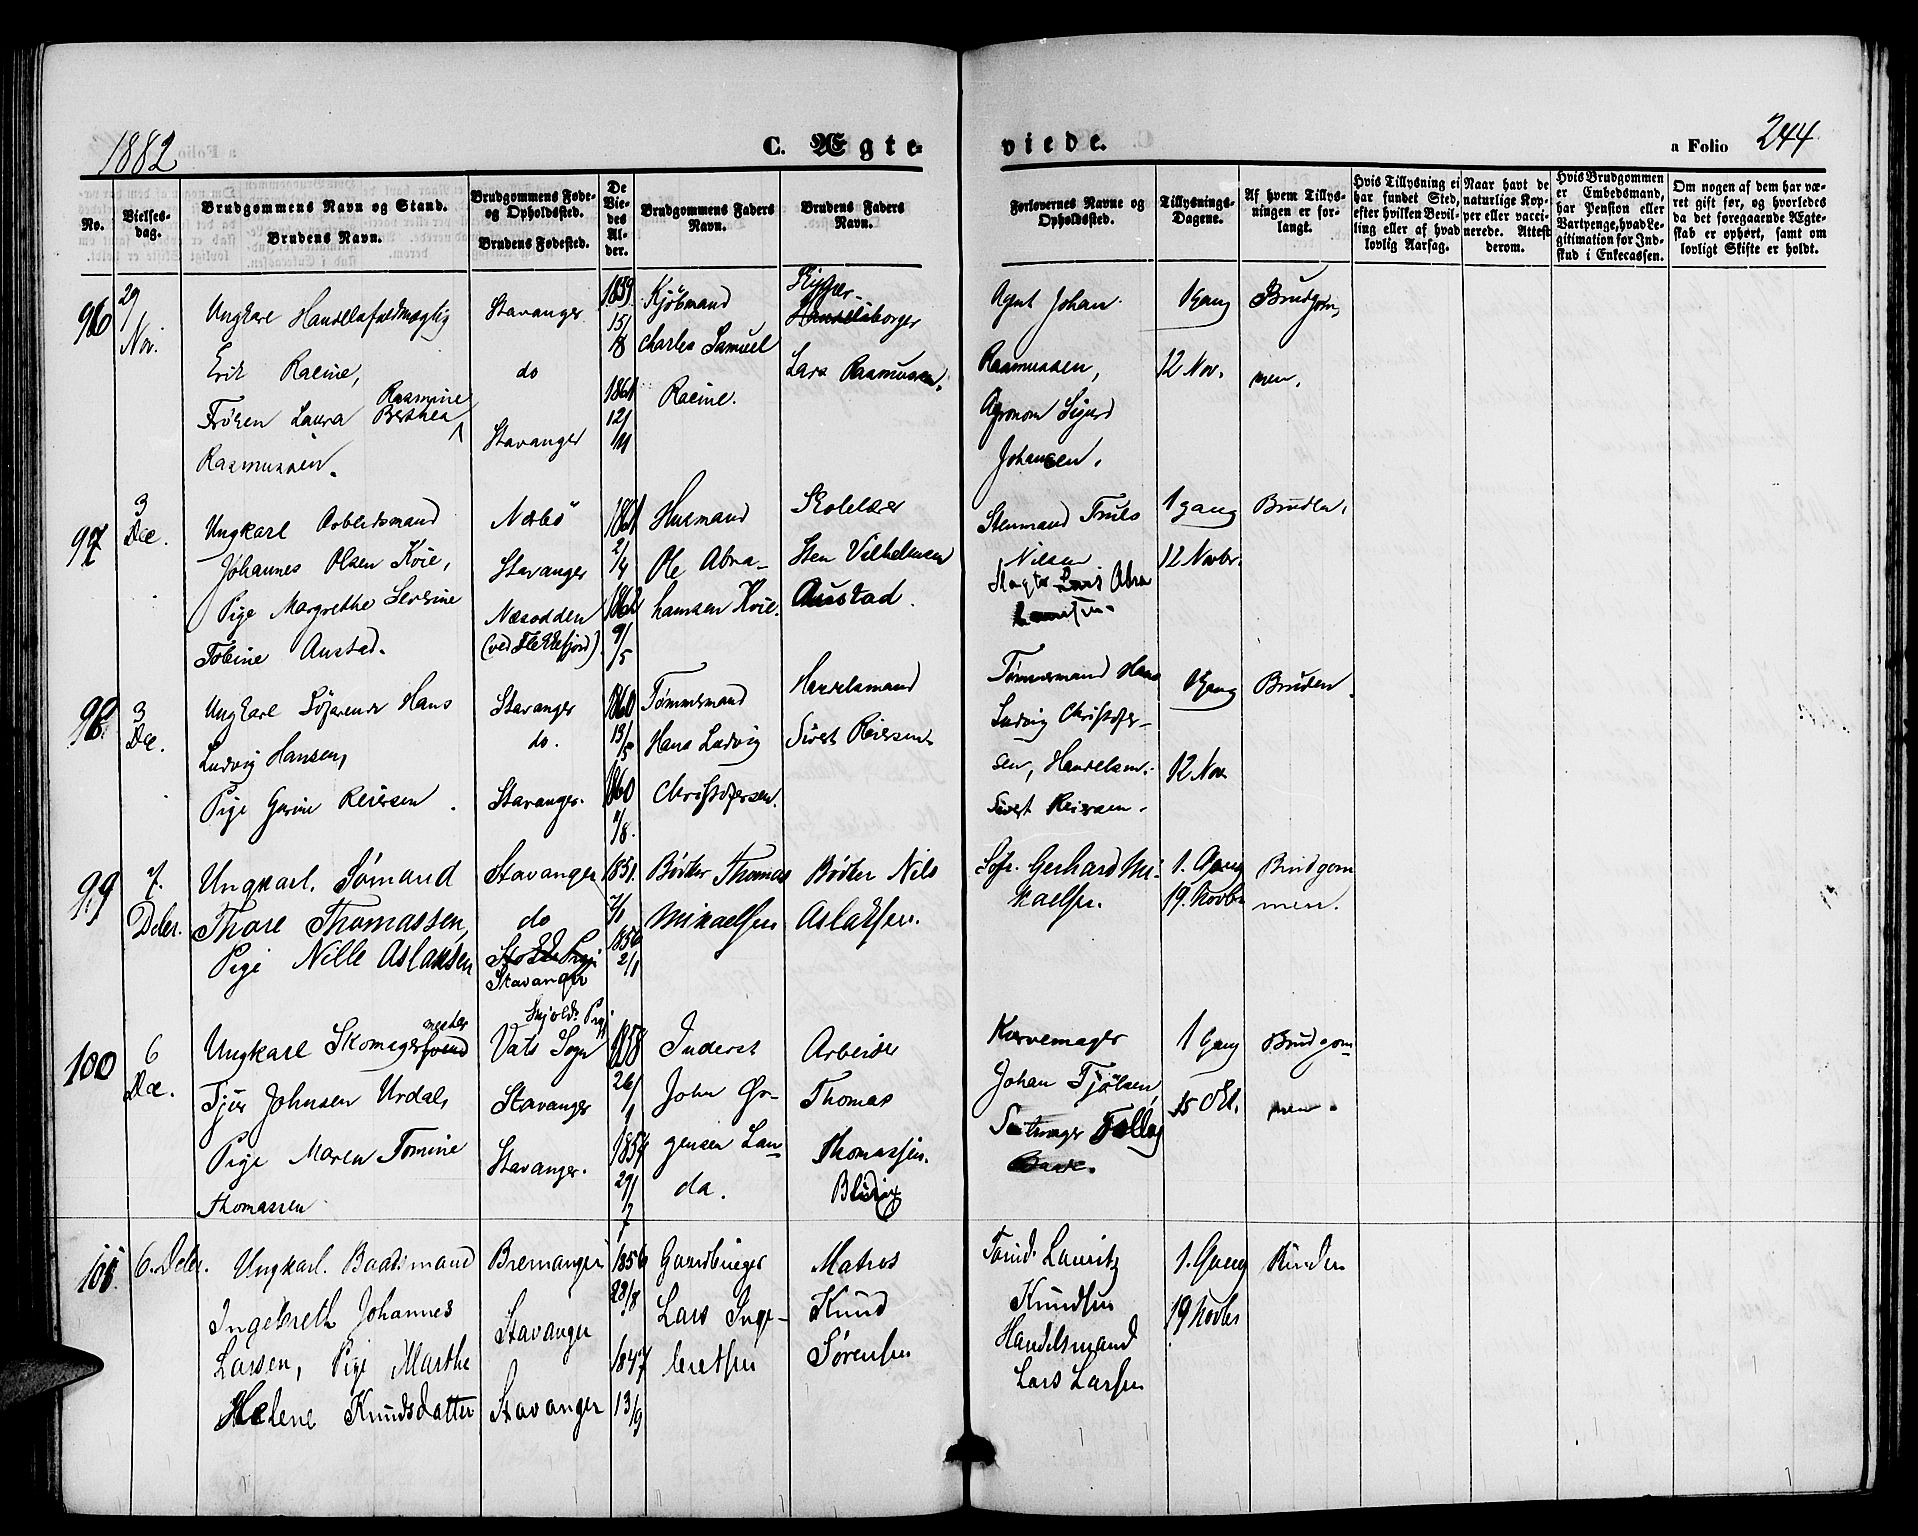 1882
C. Ægte-
viede.
a Folio 244
No.
Vielses-
dag.
Brudgommens Navn og Stand.
Brudens Navn.
Brudgommens Føde-
og Opholdssted.
Brudens Fødested.
De
Vie-
des
Al-
der.
Brudgommens Faders
Navn.
Brudens Faders
Navn.
Forlovernes Navne og
Opholdssted.
Tillysnings-
Dagene.
Af hvem Tillys-
ningen er for-
langt.
Hvis Tillysning ei
har fundet Sted,
efter hvilken Bevil-
ling eller af hvad
lovlig Aarsag.
Naar havt de
naturlige Kop-
per eller vacci-
nerede. Attest
derom.
Hvis Brudgommen
er Embedsmand,
har Pension eller
Vartpenge, hvad Le-
gitimation for Ind-
skud i Enkecassen.
Om nogen af dem har væ-
ret gift før, og hvorledes
da det foregaaende Ægte-
skab er ophørt, samt om
lovligt Skifte er holdt.
96
29/
Nov.
Ungkarl Handelsfuldmægtig
Erik Racine,
Frøken Laura Berthea Rasmine
Rasmussen.
Stavanger
do
Stavanger
1859
15/
18
1861
12/
11
Kjøbmand
Charles Samuel
Racine.
Handelsborger
Lars Rasmussen.
Agent Johan
Rasmussen,
Agronom Sigurd
Johansen.
1 Gang
12 Nov.
Brudgom,
men.
97
3
Dec.
Ungkarl Arbeidsmand
Johannes Olsen Kvie,
Pige Margrethe Severine
Tobine Austad.
Nærbø
Stavanger
Næsodden
(ved Flekkefjord).
1861
2/
4
1862
9/
5
Husmand
Ole Abra-
hamsen Kvie.
Skolelærer
Sten Vilhelmsen
Austad.
Stenmand Truls
Nilsen
1 Gang
12 Novbr.
Bruden.
98
3
Dec.
Ungkarl Søfarende Hans
Ludvig Hansen,
Pige Gurine Reiersen.
Stavanger
do.
Stavanger.
1860
13/
5
1860
/8.
Tømmermand
Hans Ludvig
Christofersen.
Handelsmand
Sivert Reiersen.
Tømmermand Hans
Ludvig Christofer-
sen, Handelsm.
Sivert Reiersen.
1 Gang
12 Nov.
Bruden.
99
7.
Dcbr.
Ungkarl. Sømand
Thore Thomassen,
Pige Nille Aslaksen
Stavanger
do
Stavanger
1851.
1856
2/1
Bødker Thomas
Mikaelsen
Bødker Nils
Aslaksen.
Søfr. Gerhard Mi-
kaelsen.
1. Gang
19. Novbr
Brudgom
men.
100
6
Dec.
Ungkarl Skomagersvend mester
Tjer Johnsen Urdal,
Pige Maren Tomine
Thomassen
Skjolds Pgj.
Vats Sogn
Stavanger
Stavanger.
1858
26/
9
1854
29/
7
Inderst
John Ør-
gensen Lan-
da.
Arbeider
Thomas
Thomassen.
Kurvemager
Johan Tjølsen,
1 Gang
15 Okt.
Brudgom-
men.
101.
6. Dcbr.
Ungkarl. Baadsmand
Ingebreth Johannes
Larsen, Pige Marthe
Helene Knudsdatter
Bremanger
Stavanger
Stavanger
1856
28/8
1847
13/9
Gaardbruger
Lars Inge-
bretsen
Matros
Knud
Sørensen
Lauritz
Knudsen
Handelsmand
Lars Larsen
1. Gang
19 Novbr
Bruden